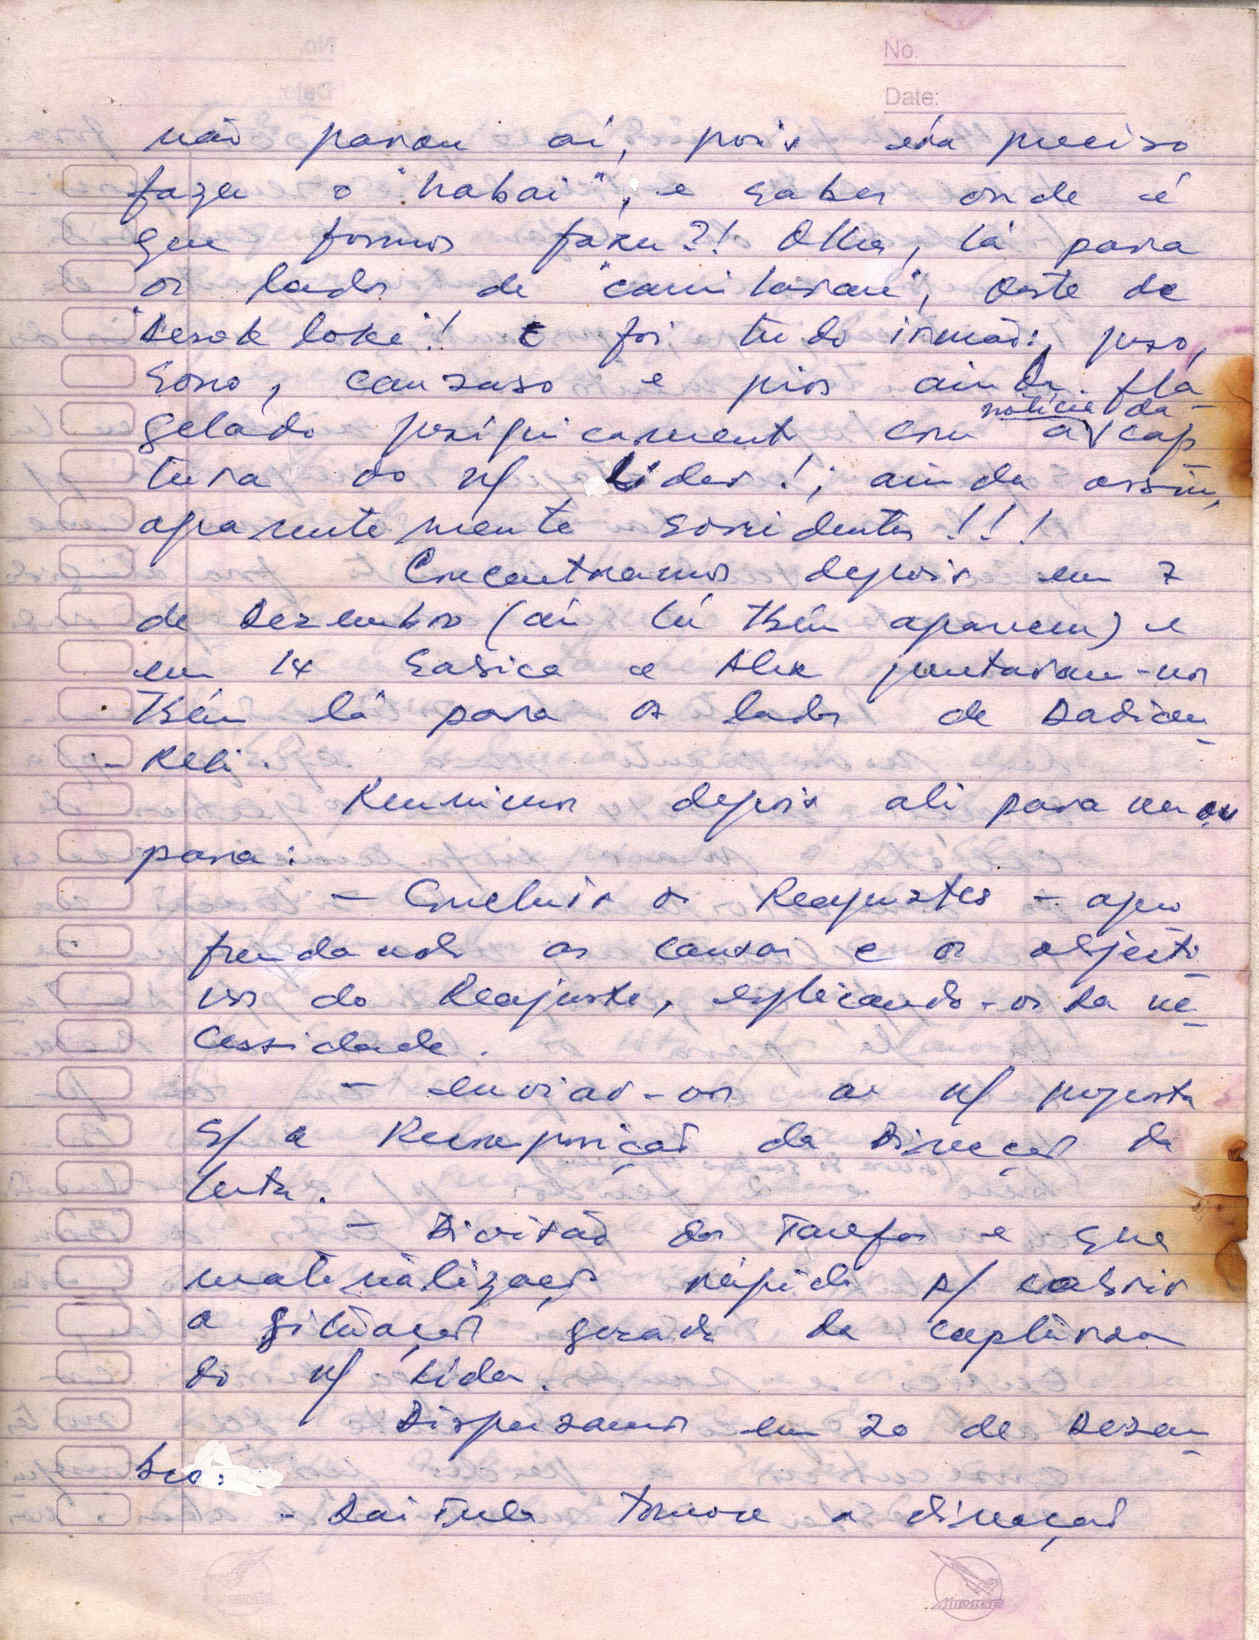 No.
Date:
não parou aí, pois era preciso
fazer o "habai", e saber onde é
que fomos fazer?! Olha, lá para
os lados de "
Deseik loke"! E foi tudo irmão: peso,
sono, cansaso e pior ainda flá-
gelado psíquicamente com a notícia da cap
tura do n/ Líder!; ainda assim,
aparentemente sorridentes!!!
Encontramos depois em 7
de Dezembro (aí Lú tbém aparecem) e
em 14 Sabica e Alex juntaram-nos
tbém lá para os lados de
Reunimos depois ali para
para:
- Concluir os Reajustes - apro
fundando as causas e os objecti-
vos do Reajuste, explicando-os da ne-
cessidade.
- enviar-os a n/ proposta
s/ a Recomposição da Direcção da
luta.
- Divisão das Tarefas e sua
materialização rápida p/ cobrir
a situação gerada da captura
do n/ Líder.
Dispersamos em 20 de Dezem-
bro:
- Daitula tomou a direcção